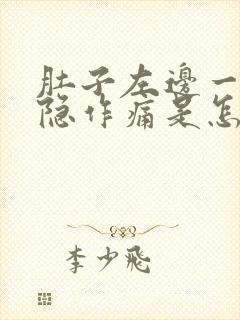 肚子左邊一
隐作痛是怎
李少飛